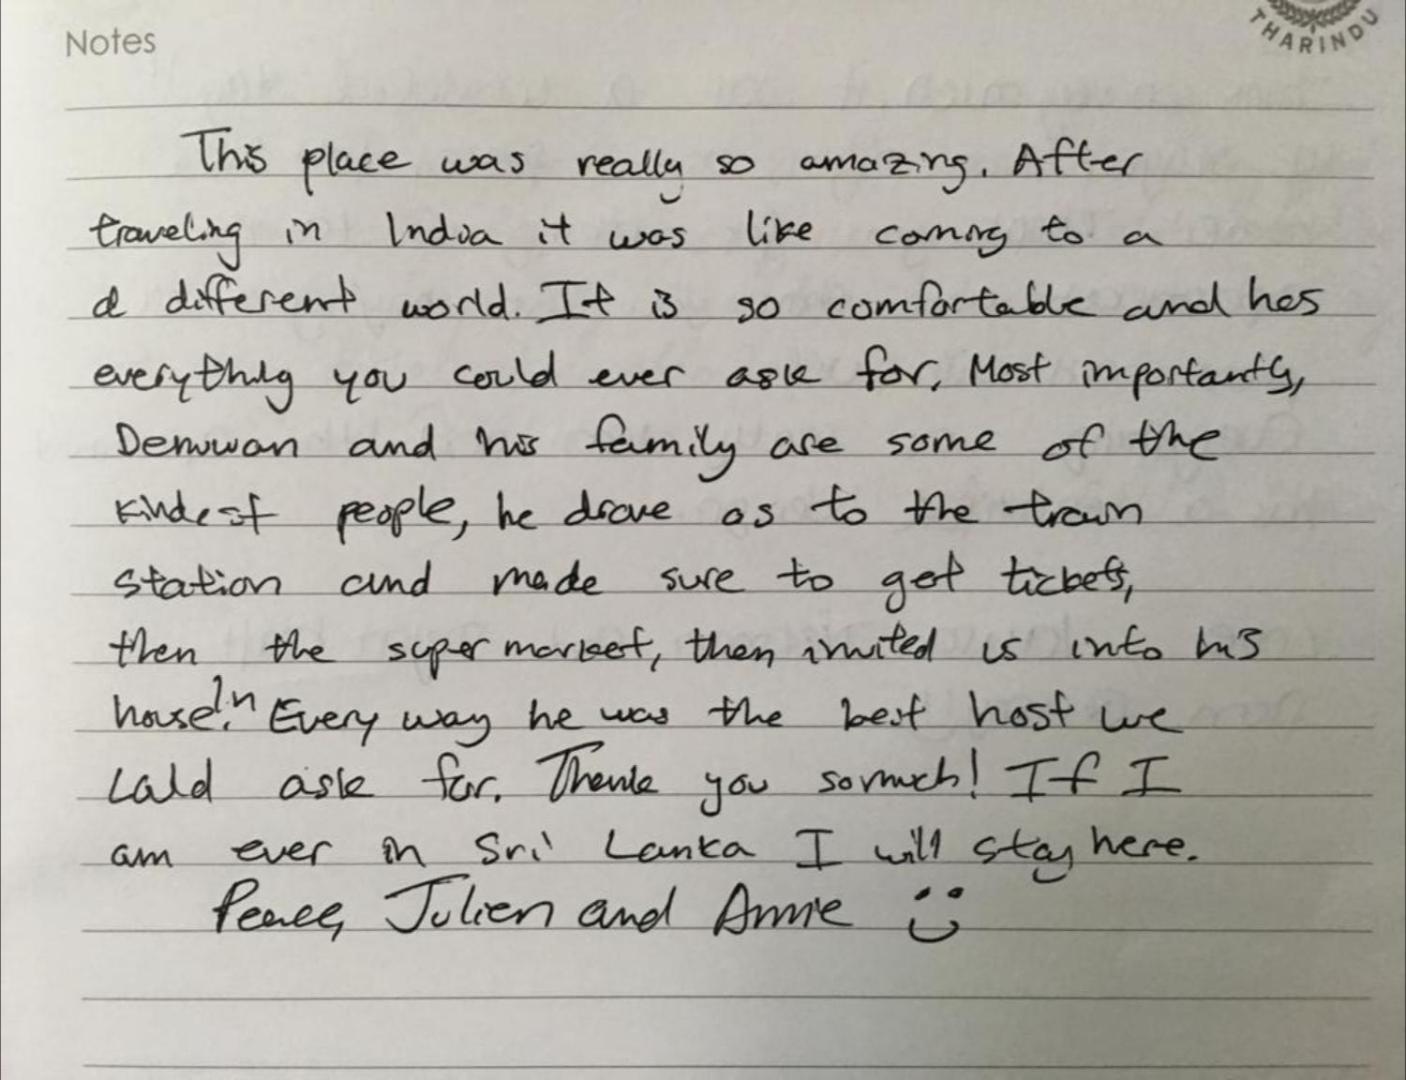 Notes
THARINDU
This place was really so amazing. After
traveling in India it was like coming to a
a different world. It is so comfortable and has
everything you could ever ask for. Most importantly,
Denuwan and his family are some of the
kindest people, he drove us to the train
station and made sure to get tickets,
then the super market, then invited us into his
house. In Every way he was the best host we
could ask for. Thank you so much! If I
am ever in Sri Lanka I will stay here.
Peace, Julien and Annie